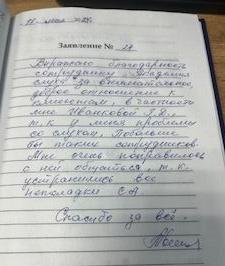 Заявление № 29
Выражаю благодарность
сотруднику Академия
слуха за внимательное,
доброе отношение к
клиентам, в частности
мне Иванковой З.В.,
т.к. у меня проблемы
со слухом. Побольше
бы таких сотрудников.
Мне очень понравилось
с ней общаться, т.к.
устранились все
неполадки С.А.
Спасибо за всё.